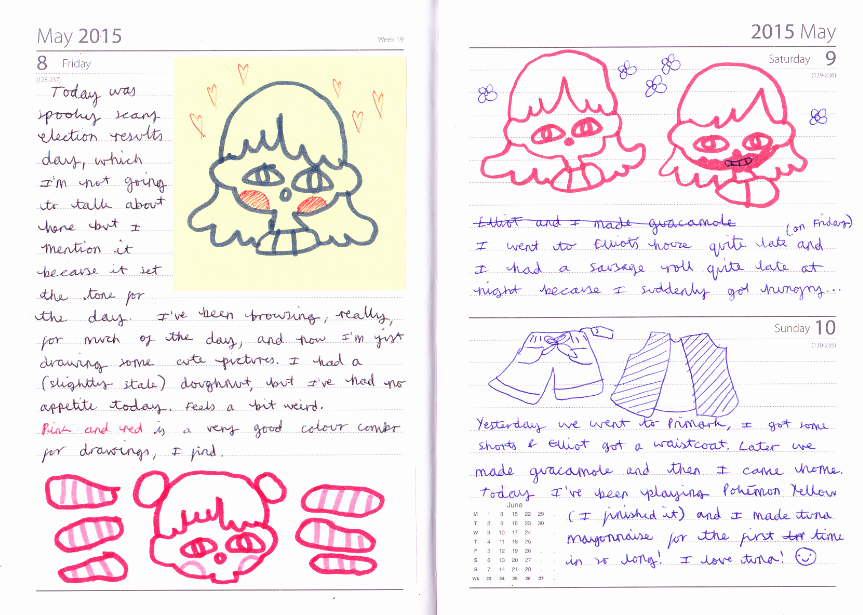 May 2015
Week 19
8 Friday
(128-237)
Today was
spooky scary
election results
day, which
I'm not going
to talk about
here but I
mention it
because it set
the tone for
the day. I've been browsing, really,
for much of the day, and now I'm just
drawing some cute pictures. I had a
(slightly stale) doughnut, but I've had no
appetite today. Feels a bit weird.
Pink and red is a very good colour combo
for drawings, I find.
2015 May
Saturday 9
(129-236)
Elliot and I made guacamole
(on Friday)
I went to Elliots house quite late and
I had a sausage roll quite late at
night because I suddenly got hungry...
Sunday 10
(130-235)
Yesterday we went to Primark, I got some
shorts & Elliot got a waistcoat. Later we
made guacamole and then I came home.
Today I've been playing Pokémon Yellow
(I finished it) and I made tuna
mayonnaise for the first time
in so long! I love tuna!
June
M 1 8 15 22 29
T 2 9 16 23 30
W 3 10 17 24
T 4 11 18 25
F 5 12 19 26
S 6 13 20 27
S 7 14 21 28
Wk 23 24 25 26 27